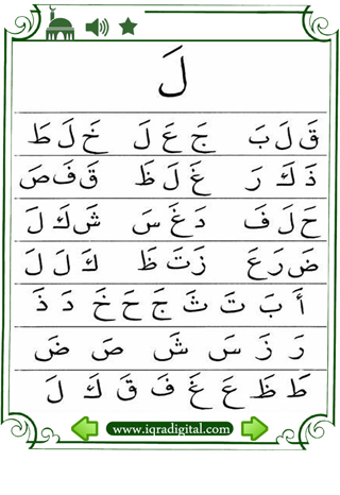 لَ
قَ لَ بَ جَ عَ لَ خَ لَ طَ
ذَ كَ رَ غَ لَ ظَ قَ فَ صَ
حَ لَ فَ دَ غَ سَ شَ كَ لَ
ضَ رَ عَ زَ تَ ظَ كَ لَ لَ
أَ بَ تَ ثَ جَ حَ خَ دَ ذَ
رَ زَ سَ شَ صَ ضَ
طَ ظَ عَ غَ فَ قَ كَ لَ
www.iqradigital.com